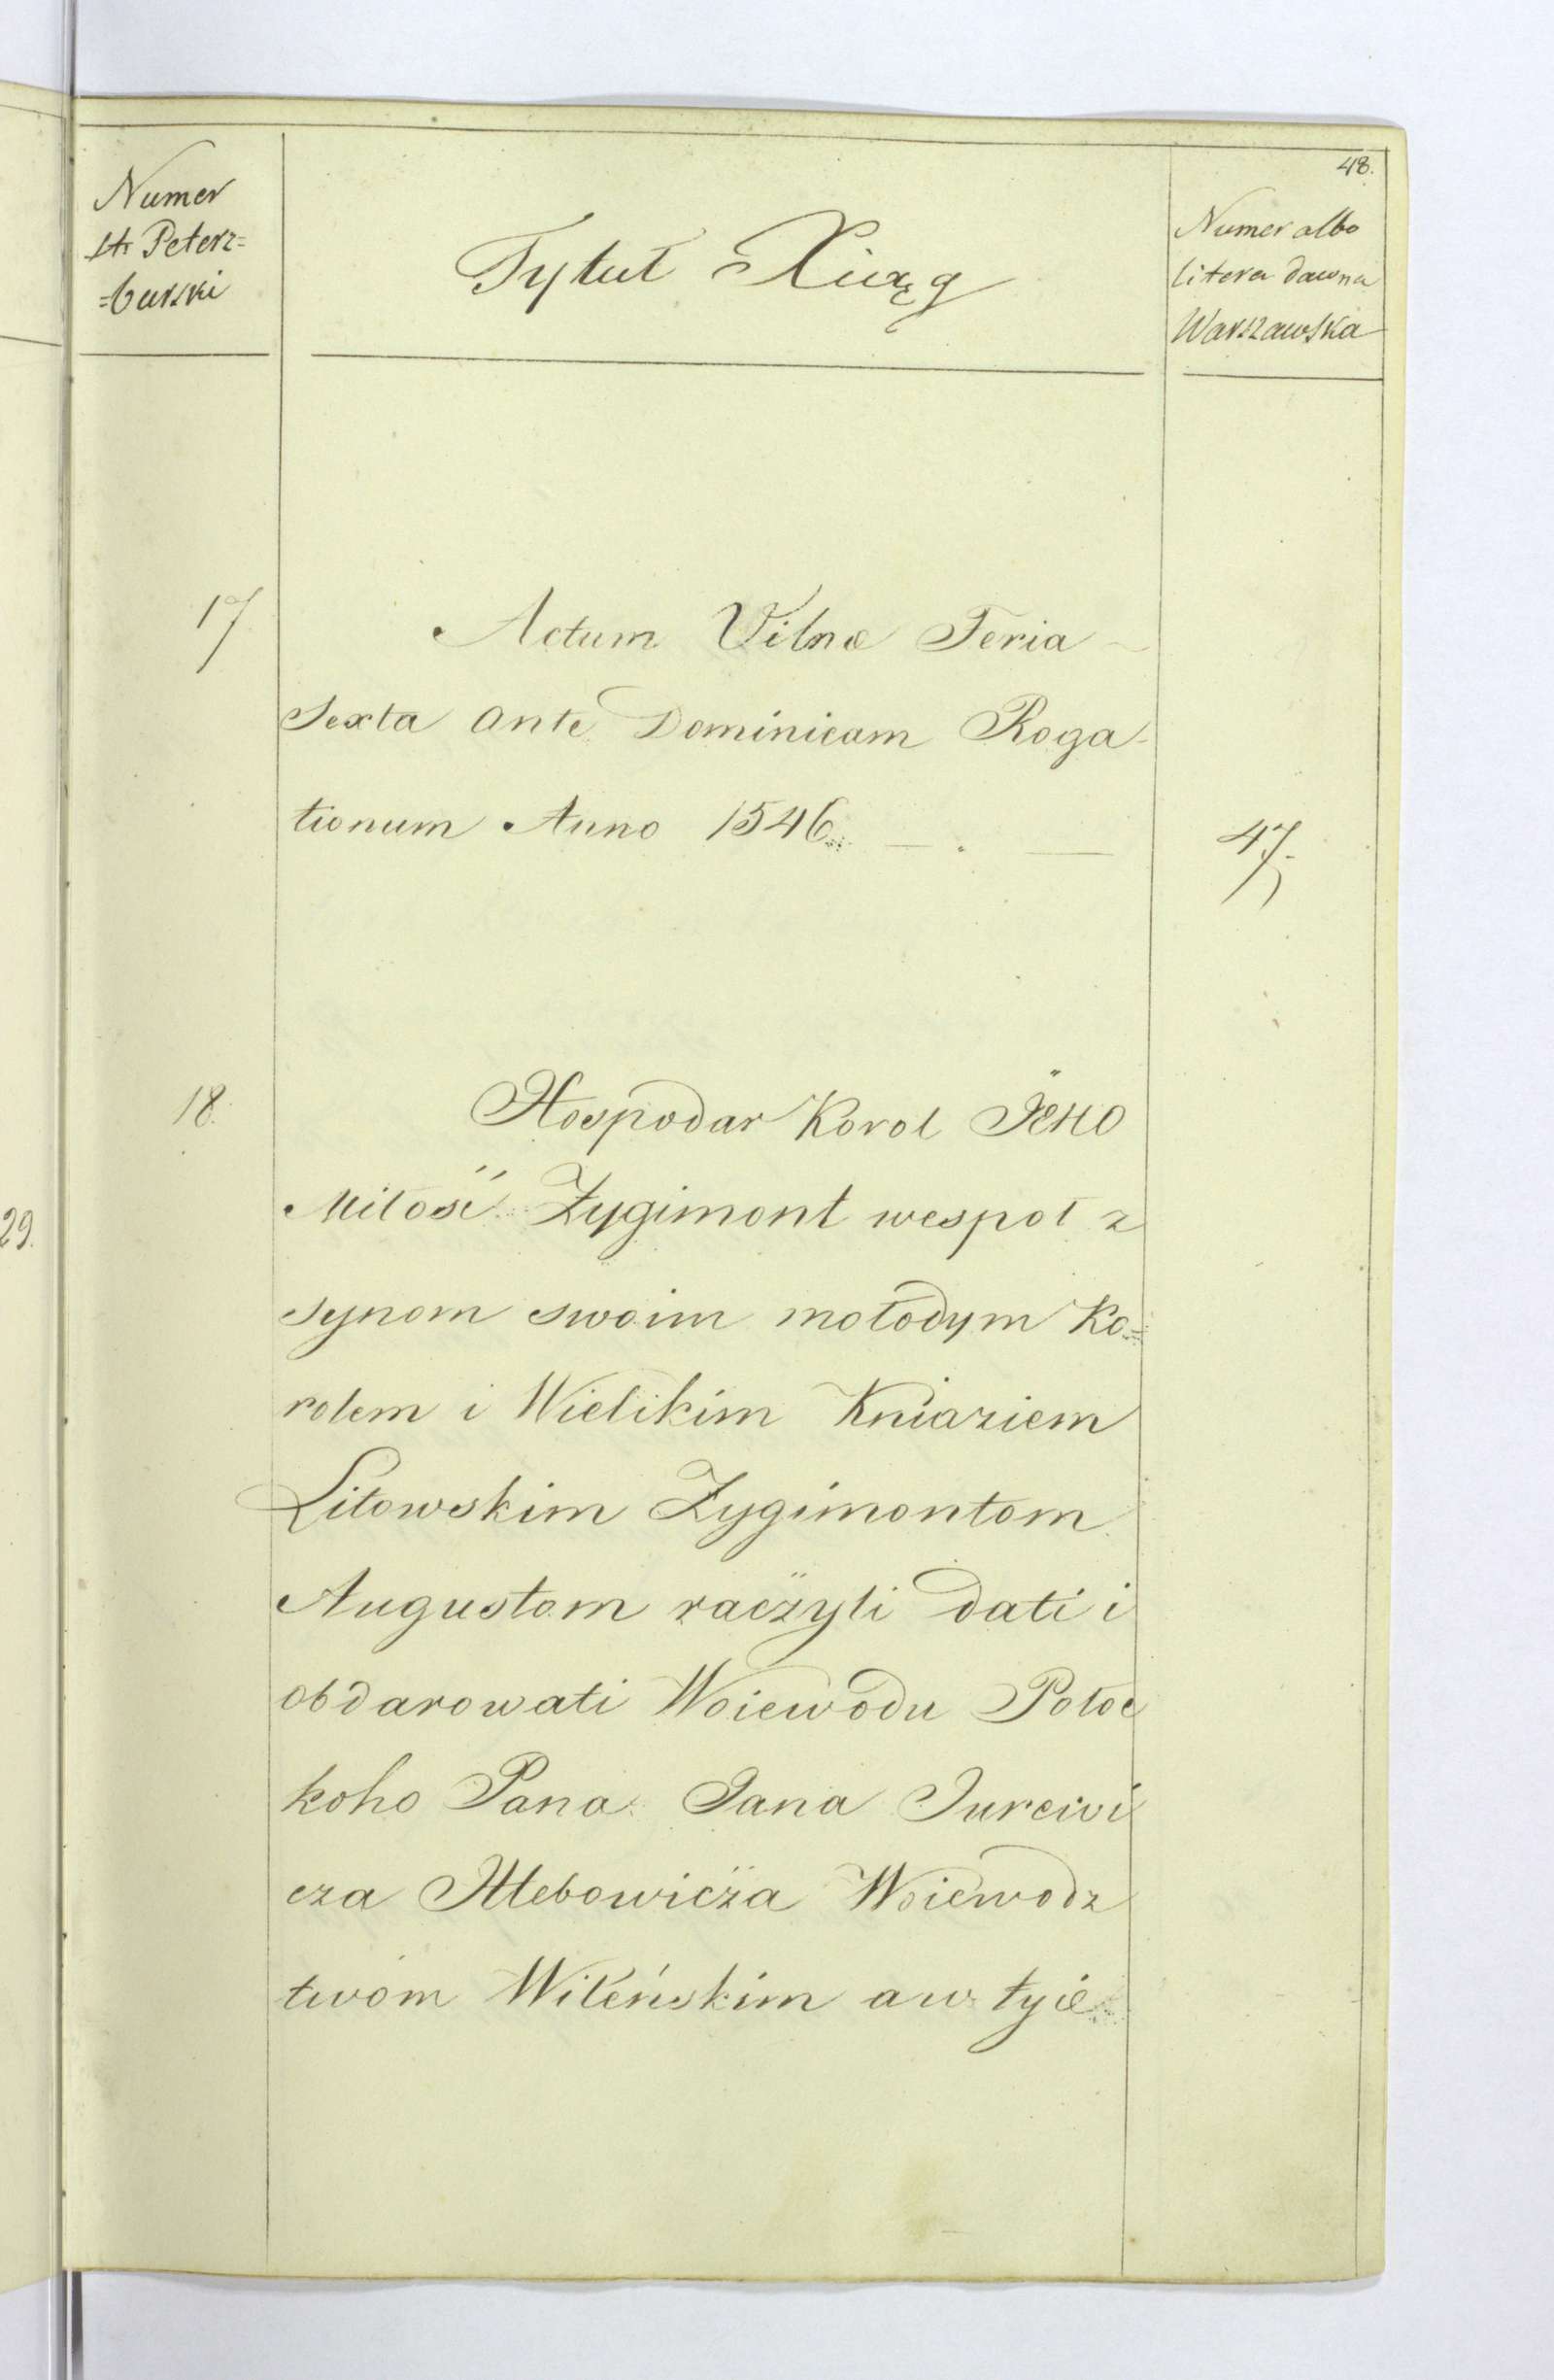 48.
Numer
St Peterz=
=burski
Tytuł Xiąg
Numer albo
litera dawna
Warszawska
17
Actum Vilnæ Feria
Sexta ante Dominicam Roga-
tionum Anno 1546.
47.
18.
Hospodar Korol JEHO
Miłość Zygimont wespoł z
synom swoim mołodym Ko=
rolem i Wielikim Kniaziem
Litowskim Zygimontom
Augustom raczyli dati i
obdarowati Woiewodu Połoc
koho Pana Jana Jurewi
cza Hlebowicza Woiewodz
twom Wileńskim a w tyie
29.